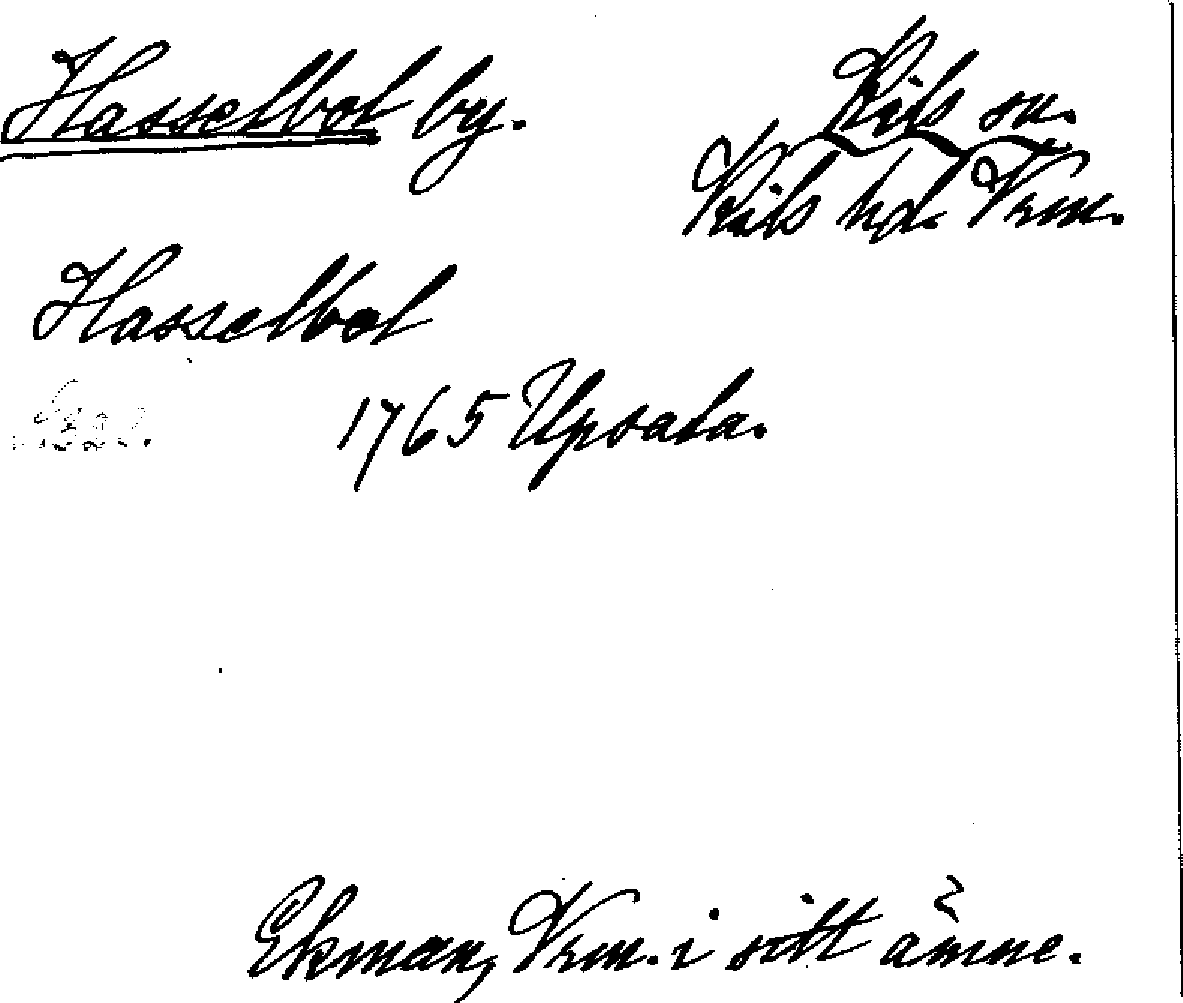 Hasselbol by.
Kils sn.
Kils hd. Vrm.
Hasselbol
1765 Upsala.
Ekman, Vrm. i sitt ämne.